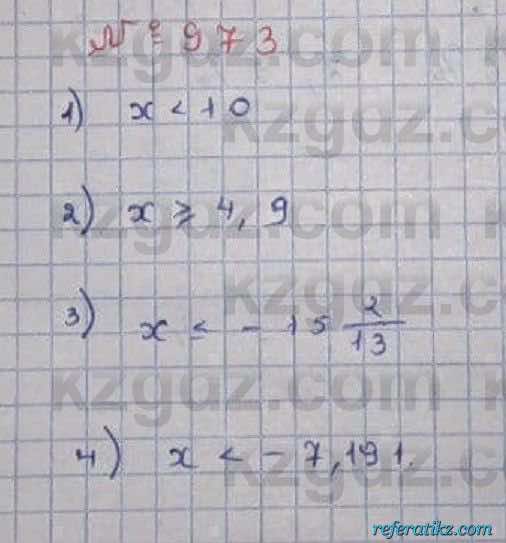 № 973
1) x < 10
2) x ≥ 4,9
3) x ≤ -15 2/13
4) x < -7,191.
kzgdz.com
referatikz.com